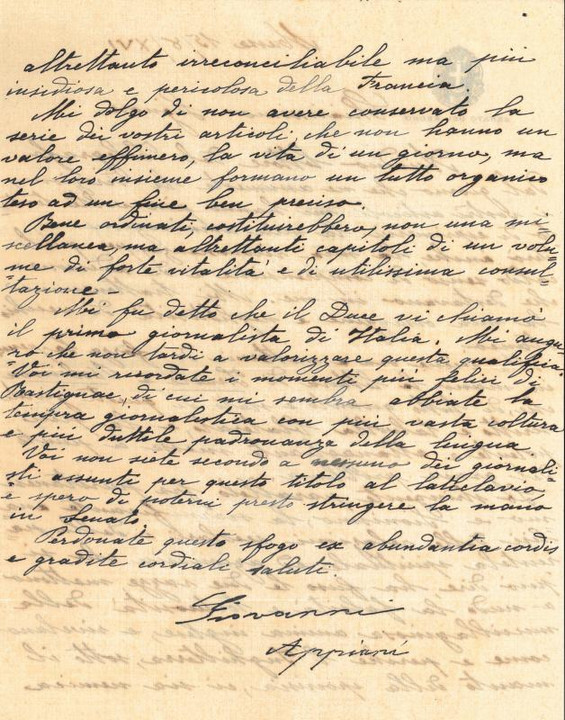 altrettanto irreconciliabile ma più
insidiosa e pericolosa della Francia.
Mi dolgo di non avere conservato la
serie dei vostri articoli, che non hanno un
valore effimero, la vita di un giorno, ma
nel loro insieme formano un tutto organico
teso ad un fine ben preciso.
Bene ordinati, costituirebbero, non una mi=
scellanea ma altrettanti capitoli di un volu=
me di forte vitalità e di utilissima consul=
tazione -
Mi fu detto che il Duce vi chiamò
il primo giornalista di Italia. Mi augu=
ro che non tardi a valorizzare questa qualifica.
Voi mi ricordate i momenti più felici di
Rastignac, di cui mi sembra abbiate la
tempra giornalistica con più vasta coltura
e più duttile padronanza della lingua
Voi non siete secondo a nessuno dei giornali=
sti assunti per questo titolo al laticlavio,
e spero di potervi presto stringere la mano
in Senato.
Perdonate questo sfogo ex abundantia cordis
e gradite cordiali saluti.
Giovanni
Appiani